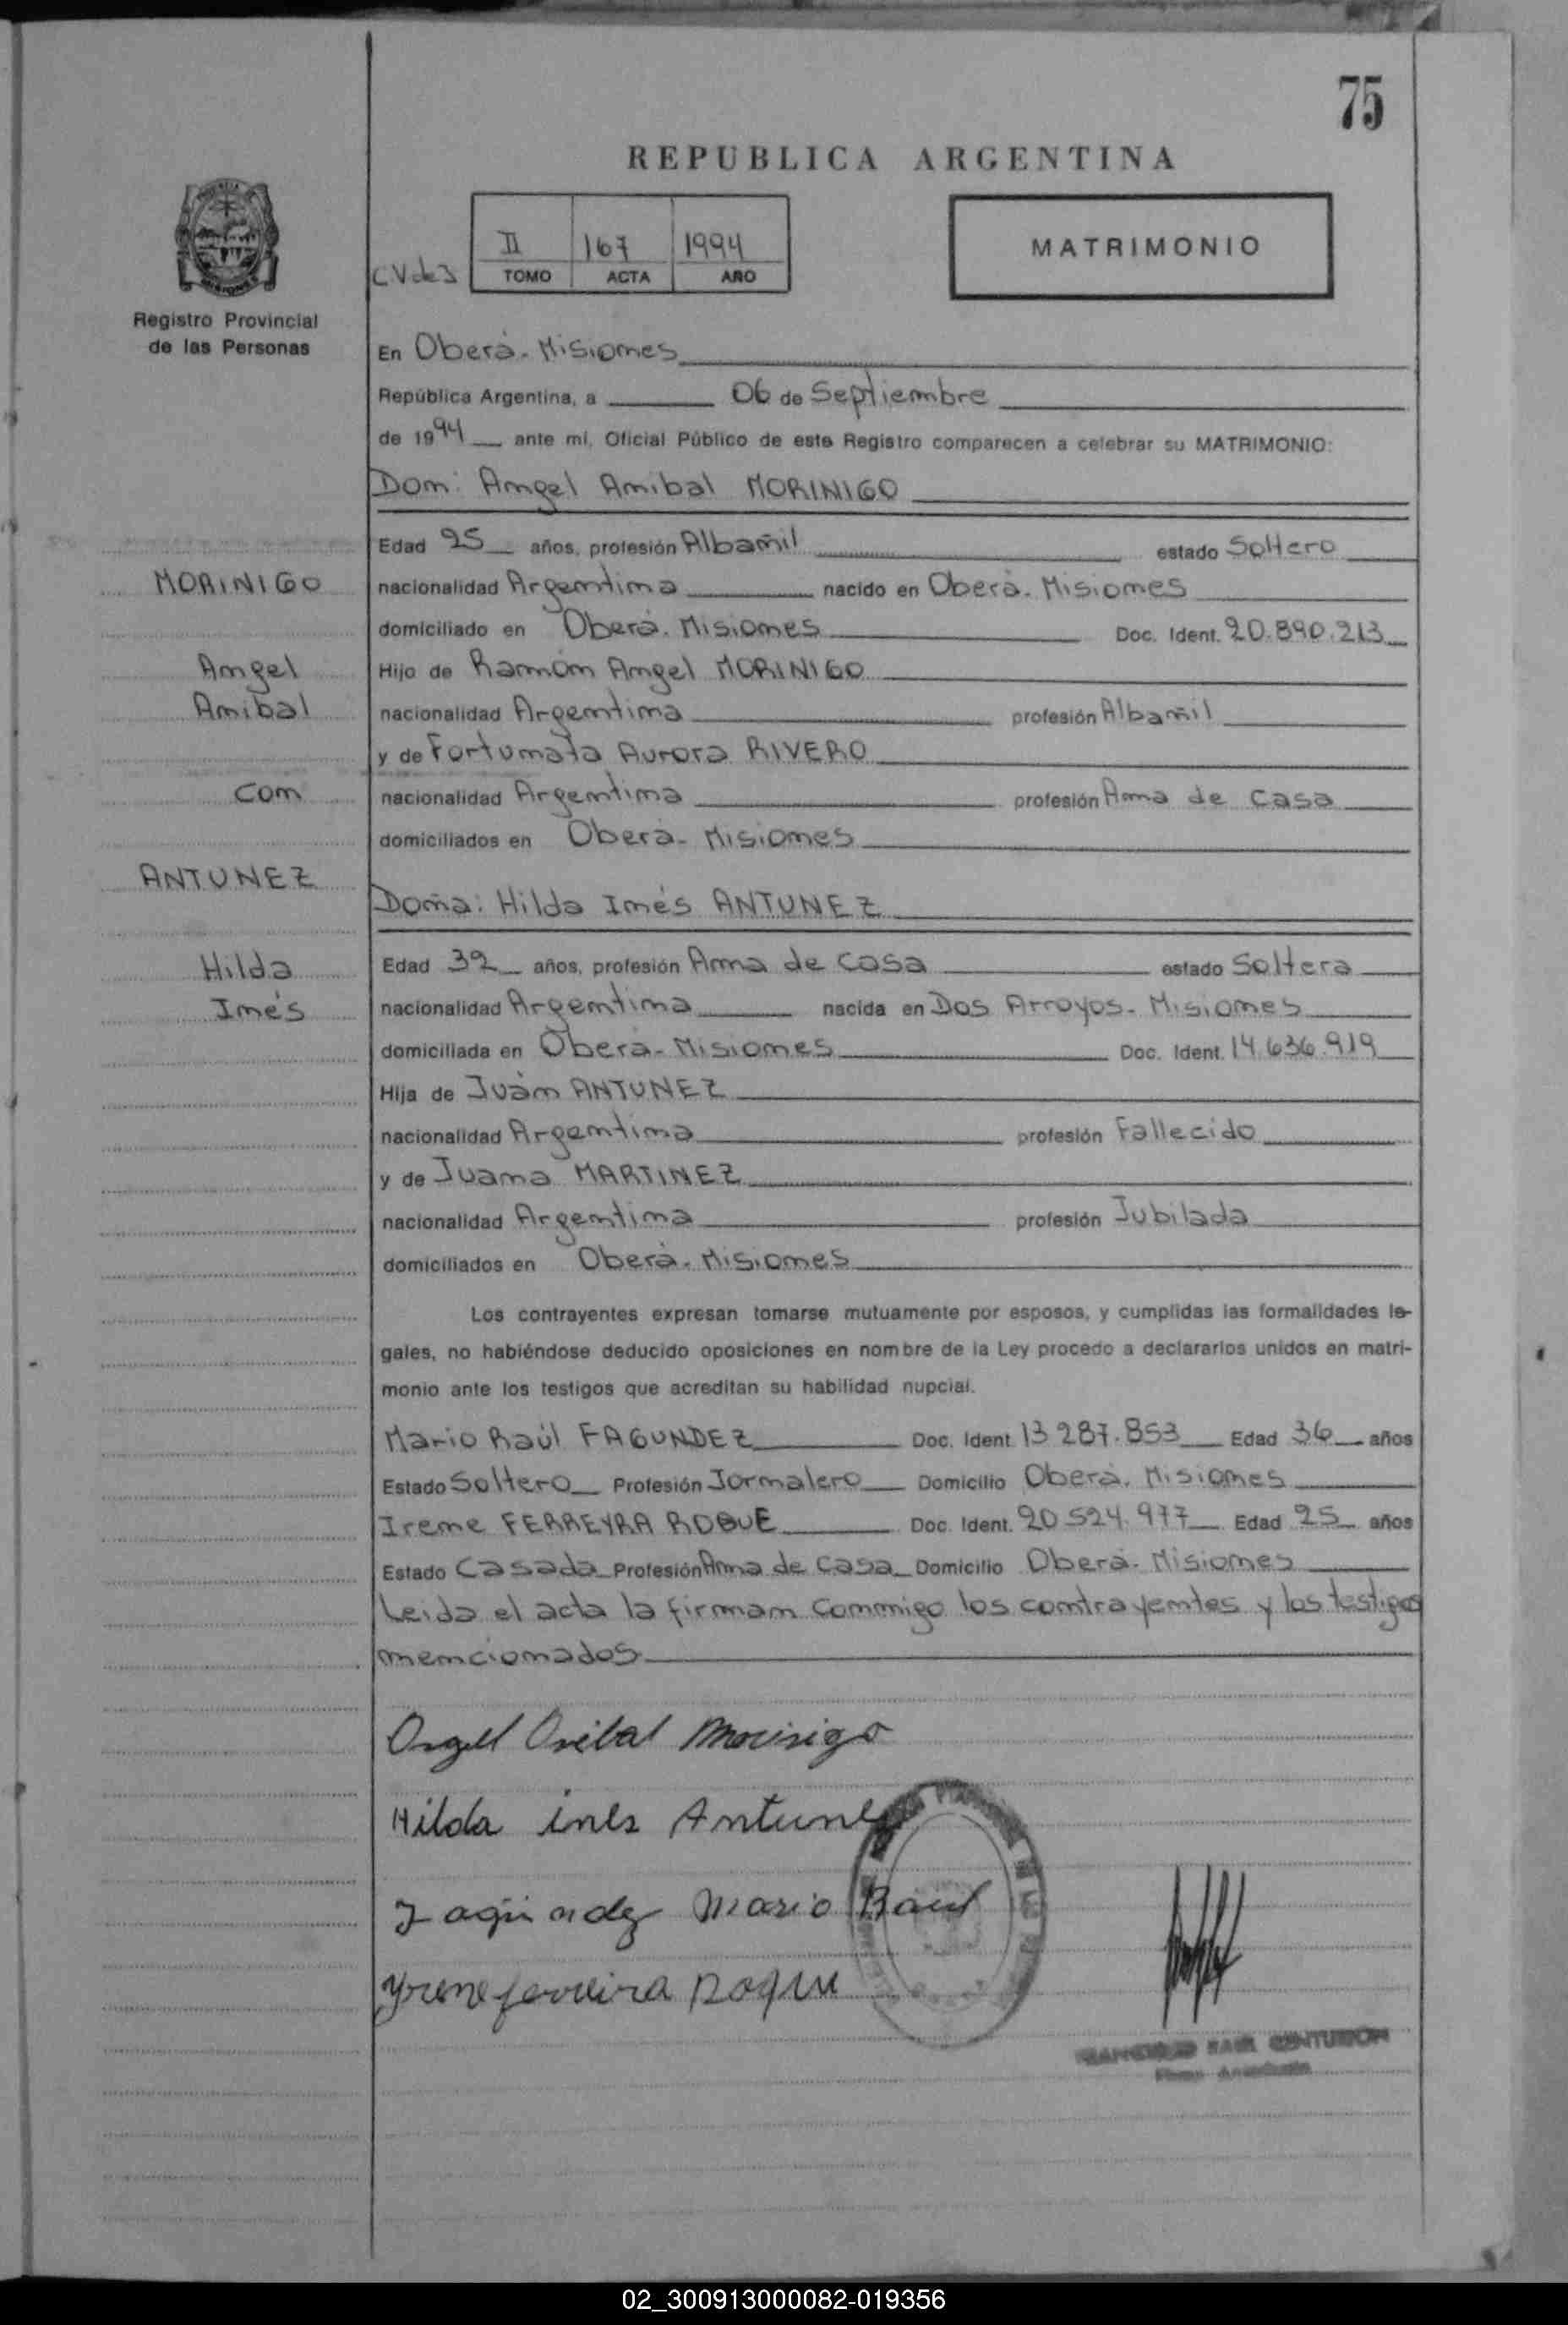 75
REPUBLICA ARGENTINA
II 167 1994
TOMO ACTA AÑO
MATRIMONIO
Registro Provincial
de las Personas
En Oberá. Misiones
República Argentina, a 06 de Septiembre
de 1994 ante mí, Oficial Público de este Registro comparecen a celebrar su MATRIMONIO:
Don: Angel Anibal MORINIGO
Edad 25 años, profesión Albañil estado Soltero
MORINIGO
nacionalidad Argentina nacido en Oberá. Misiones
domiciliado en Oberá. Misiones Doc. Ident. 20.890.213
Angel
Hijo de Ramón Angel MORINIGO
Anibal
nacionalidad Argentina profesión Albañil
y de Fortunata Aurora RIVERO
Con
nacionalidad Argentina profesión Ama de casa
domiciliados en Oberá- Misiones
ANTUNEZ
Doña: Hilda Inés ANTUNEZ
Hilda
Edad 32 años, profesión Ama de casa estado Soltera
Inés
nacionalidad Argentina nacida en Dos Arroyos- Misiones
domiciliada en Oberá- Misiones Doc. Ident. 14.636.919
Hija de Juán ANTUNEZ
nacionalidad Argentina profesión Fallecido
y de Juana MARTINEZ
nacionalidad Argentina profesión Jubilada
domiciliados en Oberá. Misiones
Los contrayentes expresan tomarse mutuamente por esposos, y cumplidas las formalidades le-
gales, no habiéndose deducido oposiciones en nombre de la Ley procedo a declararlos unidos en matri-
monio ante los testigos que acreditan su habilidad nupcial.
Mario Raúl FAGUNDEZ Doc. Ident. 13.287.853 Edad 36 años
Estado Soltero Profesión Jornalero Domicilio Oberá. Misiones
Irene FERREYRA ROQUE Doc. Ident. 20.524.977 Edad 25 años
Estado Casada Profesión Ama de casa Domicilio Oberá. Misiones
Leida el acta la firman conmigo los contrayentes y los testigos
mencionados.
Angel Anibal Morinigo
Hilda inés Antunez
Fagundez Mario Raul
Yrene ferreira Roque
CENTURION
02_300913000082-019356